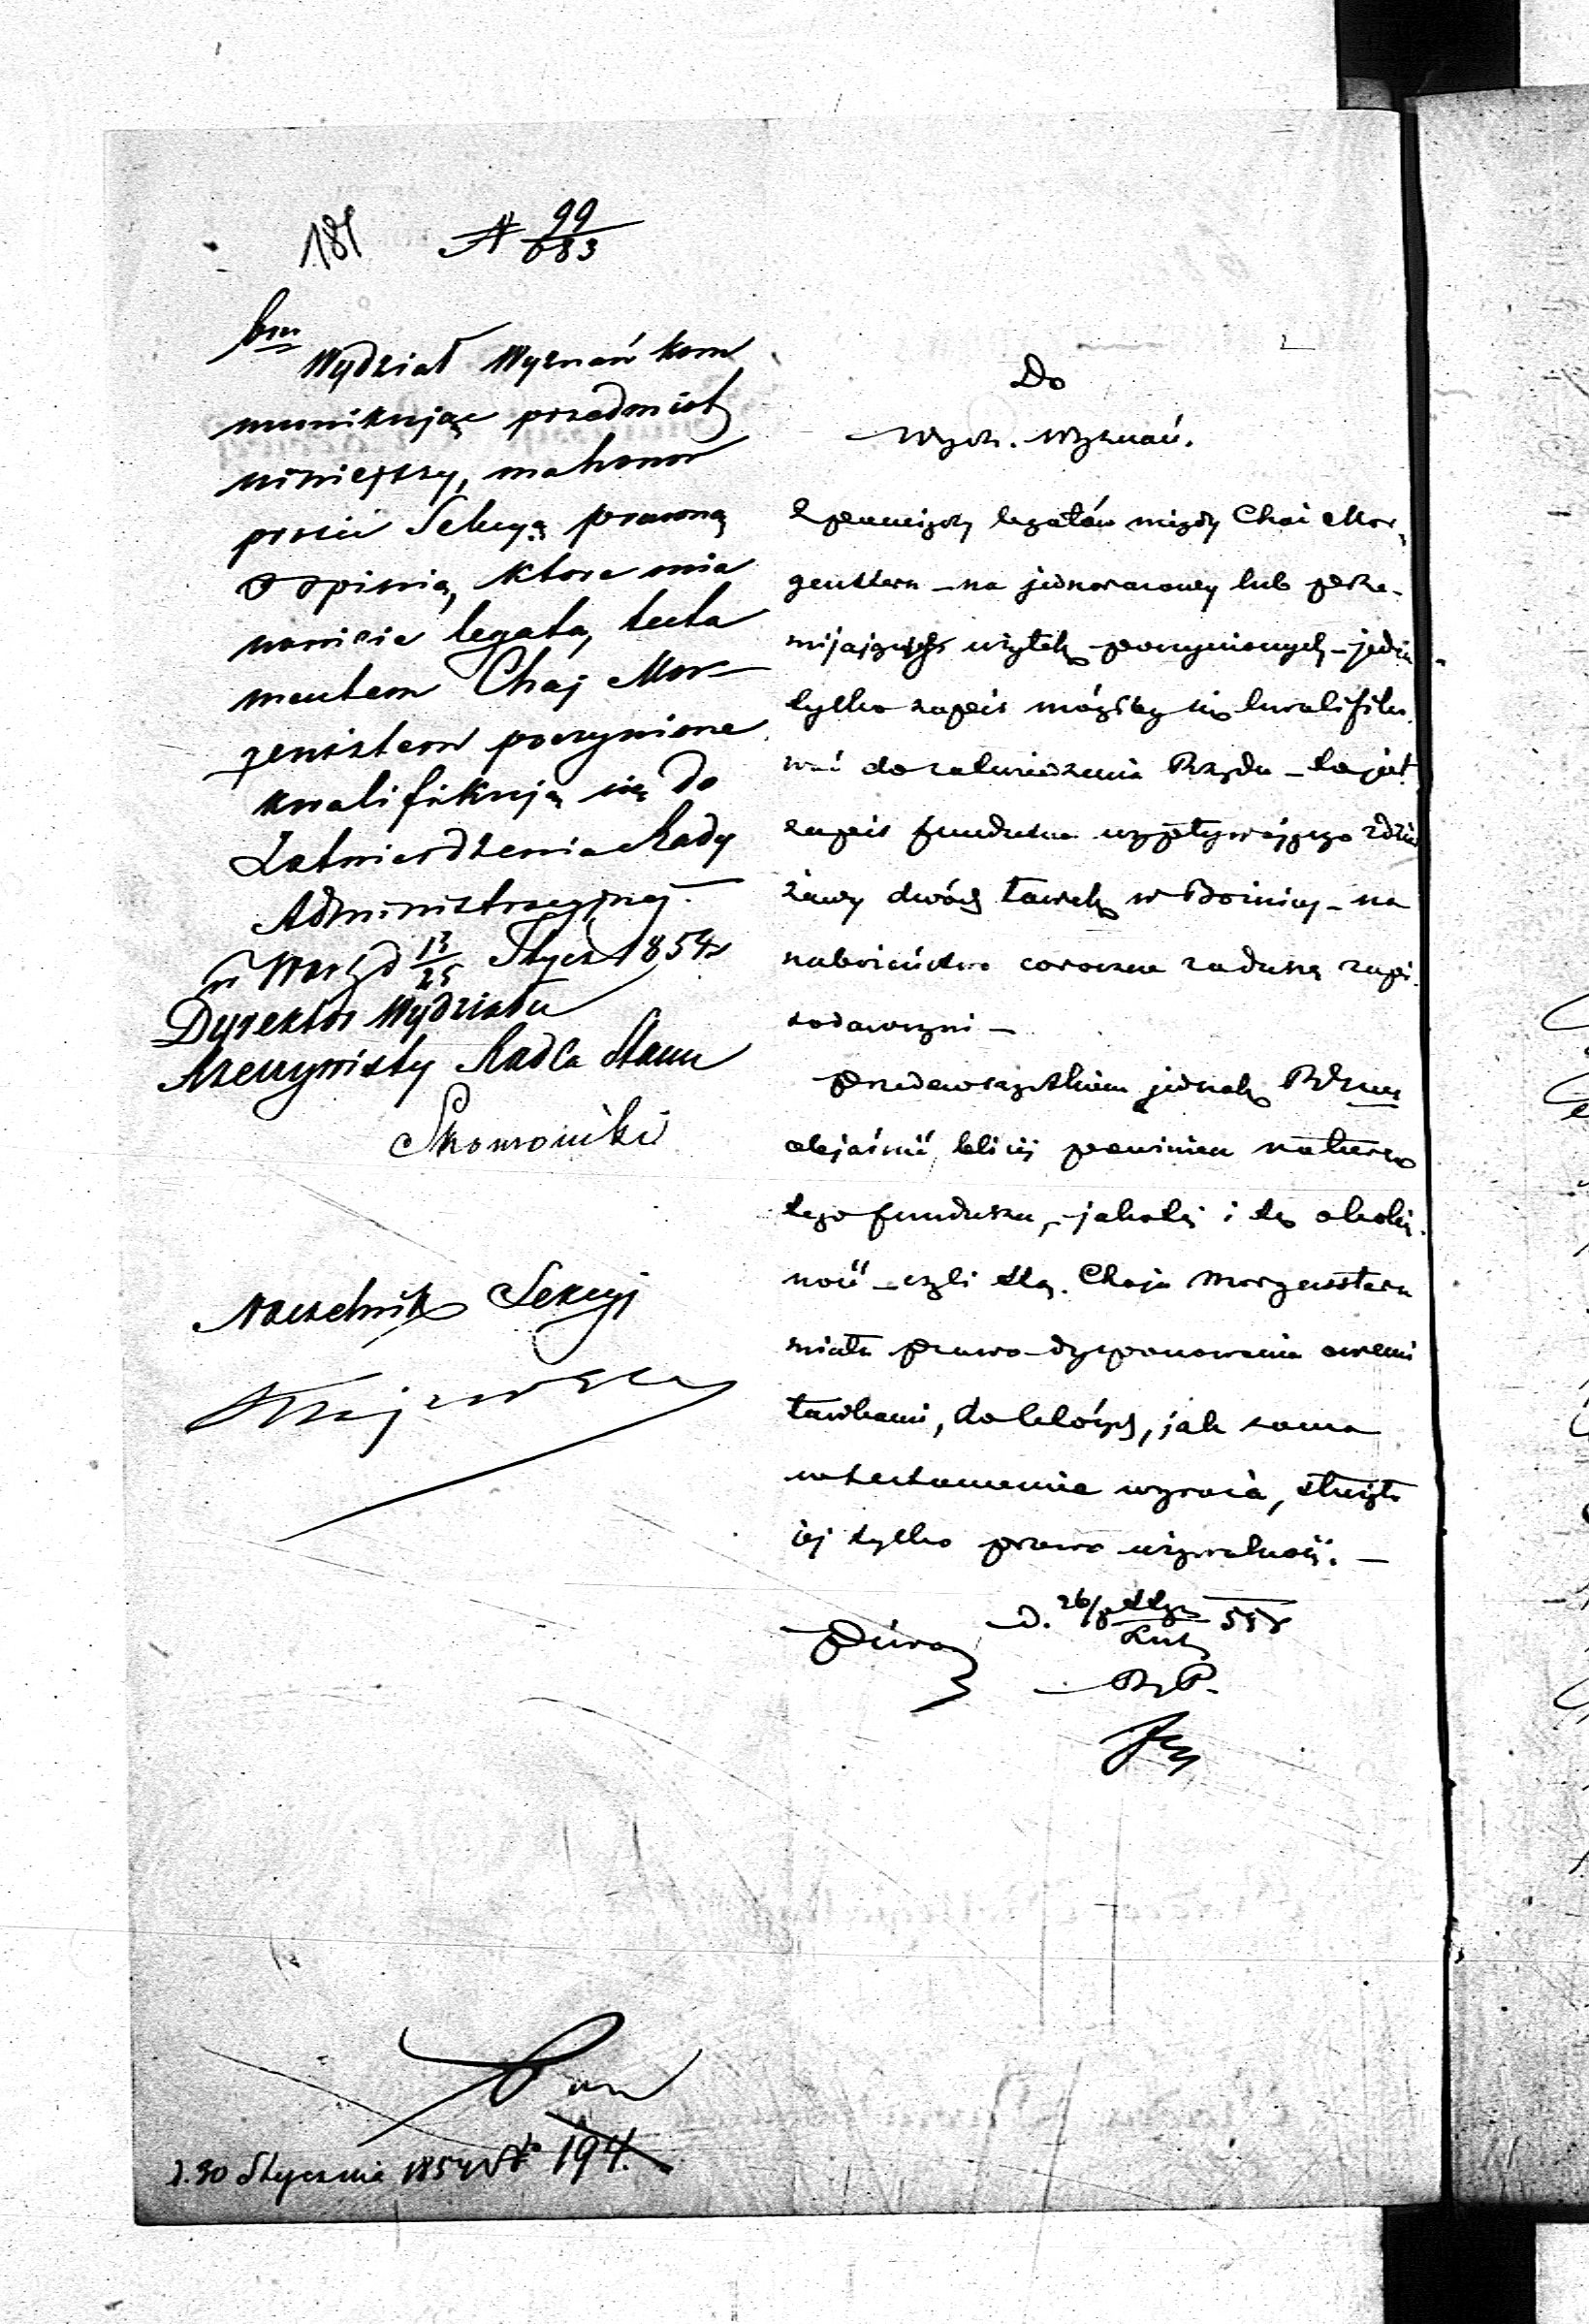 181 N 99/683
bm
Wydział Wyznań kom
munikując przedmiot
niniejszy, ma honor
prosić Sekcyą prawną
o opinią, które mia
nowicie legata, testa
mentem Chaj Mor-
genstern poczynione
kwalifikują się do
Zatwierdzenia Rady
Administracyjnej.
w Warsz d 13/25 Stycz 1854 r
Dyrektor Wydziału
Rzeczywisty Radca Stanu
Naczelnik Sekcyi
194.
d. 30 Stycznia 1854 N
Do
Wydz. Wyznań.
Z pomiędzy legatów między Chai Mor-
genstern na jednorazowy lub prze-
mijający użytek poczynionych - jeden
tylko zapis mógłby się kwalifiko-
wać do zatwierdzenia Rządu - to jest
zapis funduszu wypływającego z dzier
żawy dwóch ławek w Bóżnicy - na
nabożeństwo coroczne za duszę zapi-
sodawczyni -
Przedewszystkiem jednak
objaśnić bliżej powinien naturę
tego funduszu, jakoteż i tę okolicz-
ność - czyli Chaja Morgenstern
miała prawo dysponowania owemi
ławkami, do których, jak sama
w testamencie wyraża, służyło
jej tylko prawo używalności. -
d. 26/7 Stycz/Lut 54 r